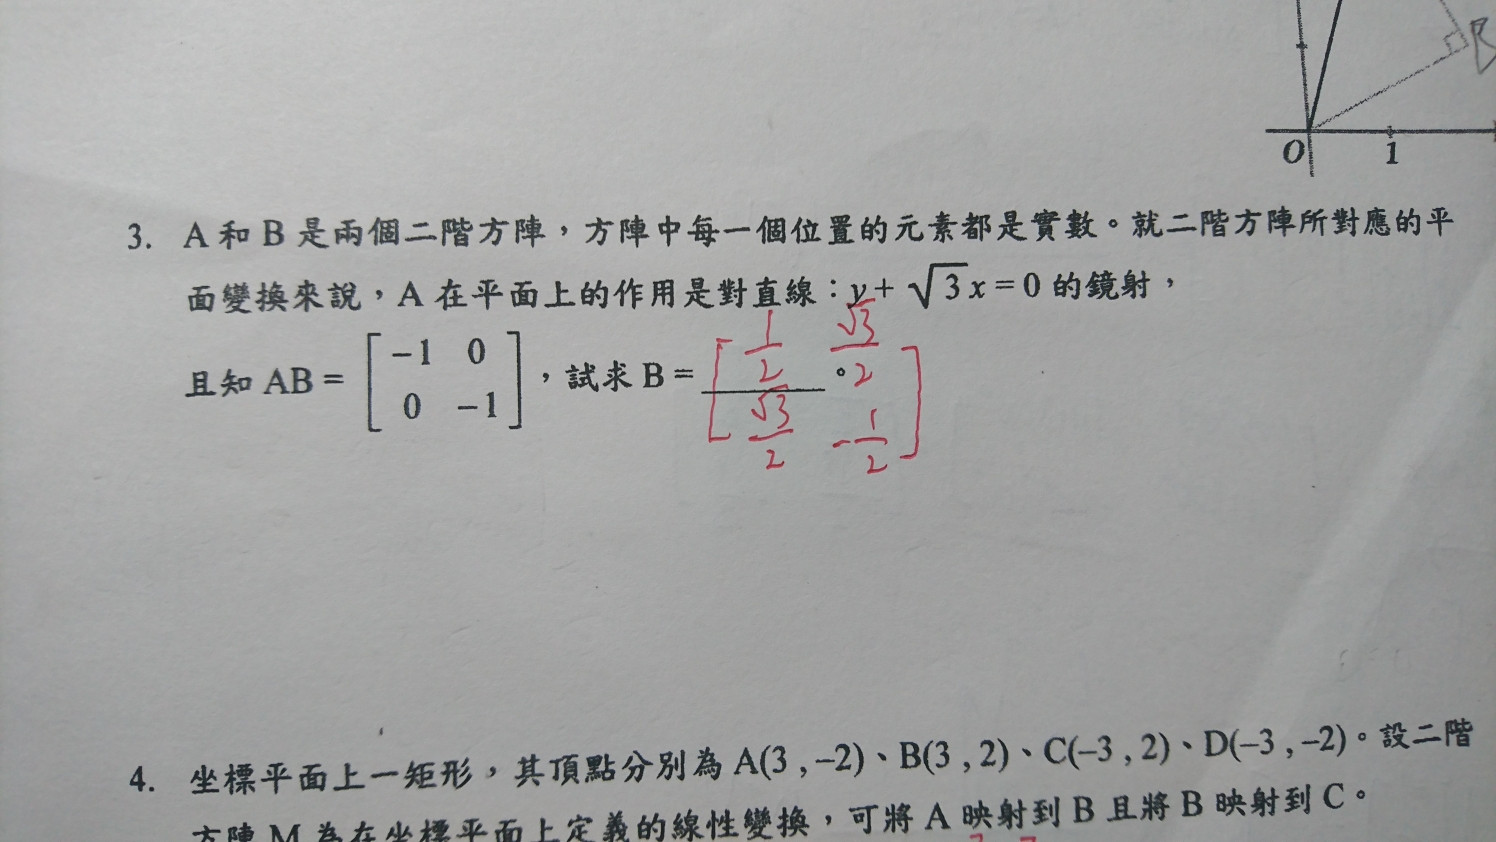 B
O 1
3. A 和 B 是兩個二階方陣，方陣中每一個位置的元素都是實數。就二階方陣所對應的平
面變換來說，A 在平面上的作用是對直線：y + √3 x = 0 的鏡射，
且知 AB = [ -1 0 ; 0 -1 ]，試求 B = [ 1/2 √3/2 ; √3/2 -1/2 ]。
4. 坐標平面上一矩形，其頂點分別為 A(3 , -2)、B(3 , 2)、C(-3 , 2)、D(-3 , -2)。設二階
方陣 M 為在坐標平面上定義的線性變換，可將 A 映射到 B 且將 B 映射到 C。